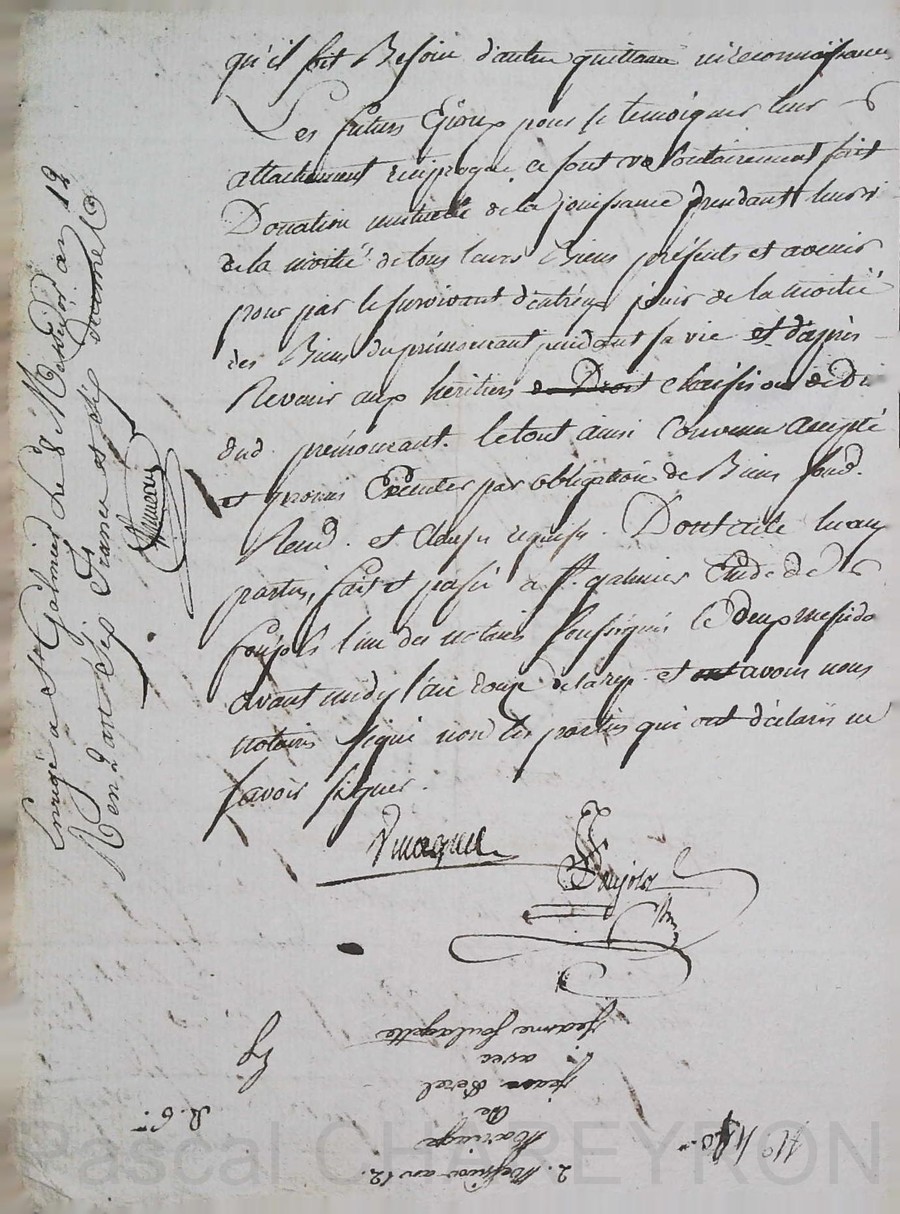 qu'il soit Besoin d'autre quittance ni reconnoissance
Les futurs Epoux pour se temoigner leur
attachement reciproque ce sont volontairement fait
Donation mutuelle de la jouissance pendant leurs vi
de la moitié de tous leurs Biens présents et avenir
pour par le survivant d'entréux jouir de la moitié
des Biens du prémourant pendant sa vie et d'après
Revenir aux héritiers de Droit choisis ou de Dt
dud. prémourant. le tout ainsi Convenu accepté
et promis Executer par obligation de Biens soud.
Rend. et clauses requises. Dont acte lu aux
parties, fait et passé a St. galmier Etude de
soujols l'un des notaires soussignés le deux messido
avant midy l'an douze de la rep. et ont avons nous
notaires signé non les parties qui ont déclaré ne
savoir signer.
Soujols
Enregé a St Galmier le 8 Messidor an 12
R en part six francs et dix
2. Messidor an 12.
Mariage
de
Jean
avec
Jeanne
R. 6
Pascal CHAREYRON